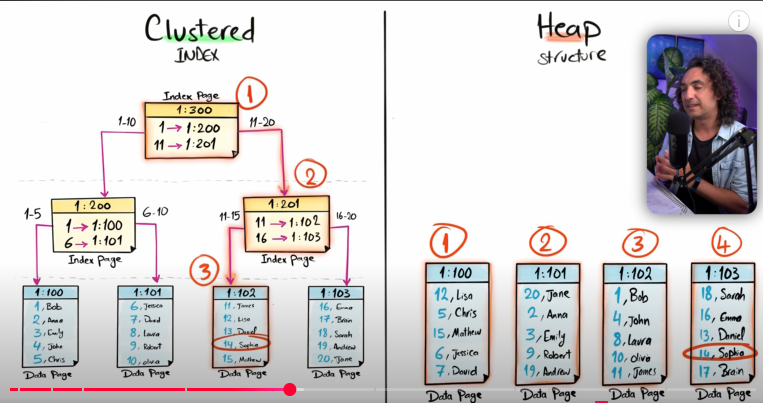 Clustered
INDEX
Index Page
1
1:300
1 → 1:200
11 → 1:201
1-10
11-20
2
1:200
1 → 1:100
6 → 1:101
Index Page
1-5
6-10
1:201
11 → 1:102
16 → 1:103
Index Page
11-15
16-20
3
1:100
1, Bob
2, Anna
3, Emily
4, John
5, Chris
Data Page
1:101
6, Jessica
7, David
8, Laura
9, Robert
10, Olivia
Data Page
1:102
11, James
12, Lisa
13, Daniel
14, Sophia
15, Mathew
Data Page
1:103
16, Emma
17, Brian
18, Sarah
19, Andrew
20, Jane
Data Page
Heap
structure
1
1:100
12, Lisa
5, Chris
15, Mathew
6, Jessica
7, David
Data Page
2
1:101
20, Jane
2, Anna
3, Emily
9, Robert
19, Andrew
Data Page
3
1:102
1, Bob
4, John
8, Laura
10, Olivia
11, James
Data Page
4
1:103
18, Sarah
16, Emma
13, Daniel
14, Sophia
17, Brain
Data Page